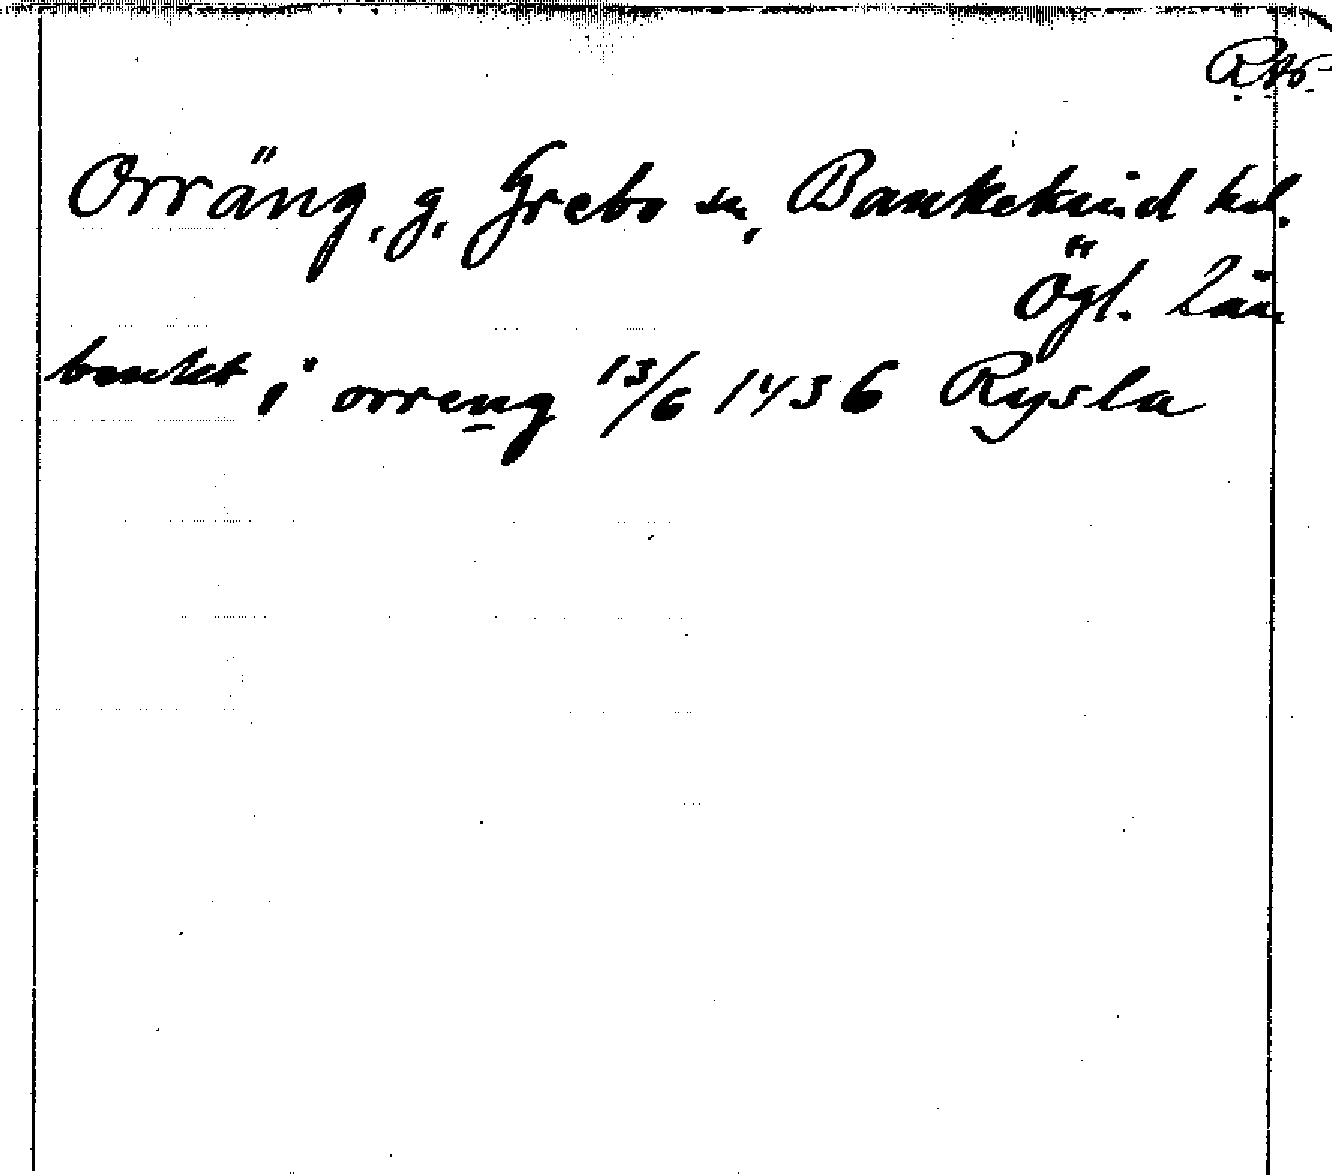 Orräng, g. Grebo sn, Bankekind hd.
Ögl. Län
benkt i orreng 13/6 1436 Rysla